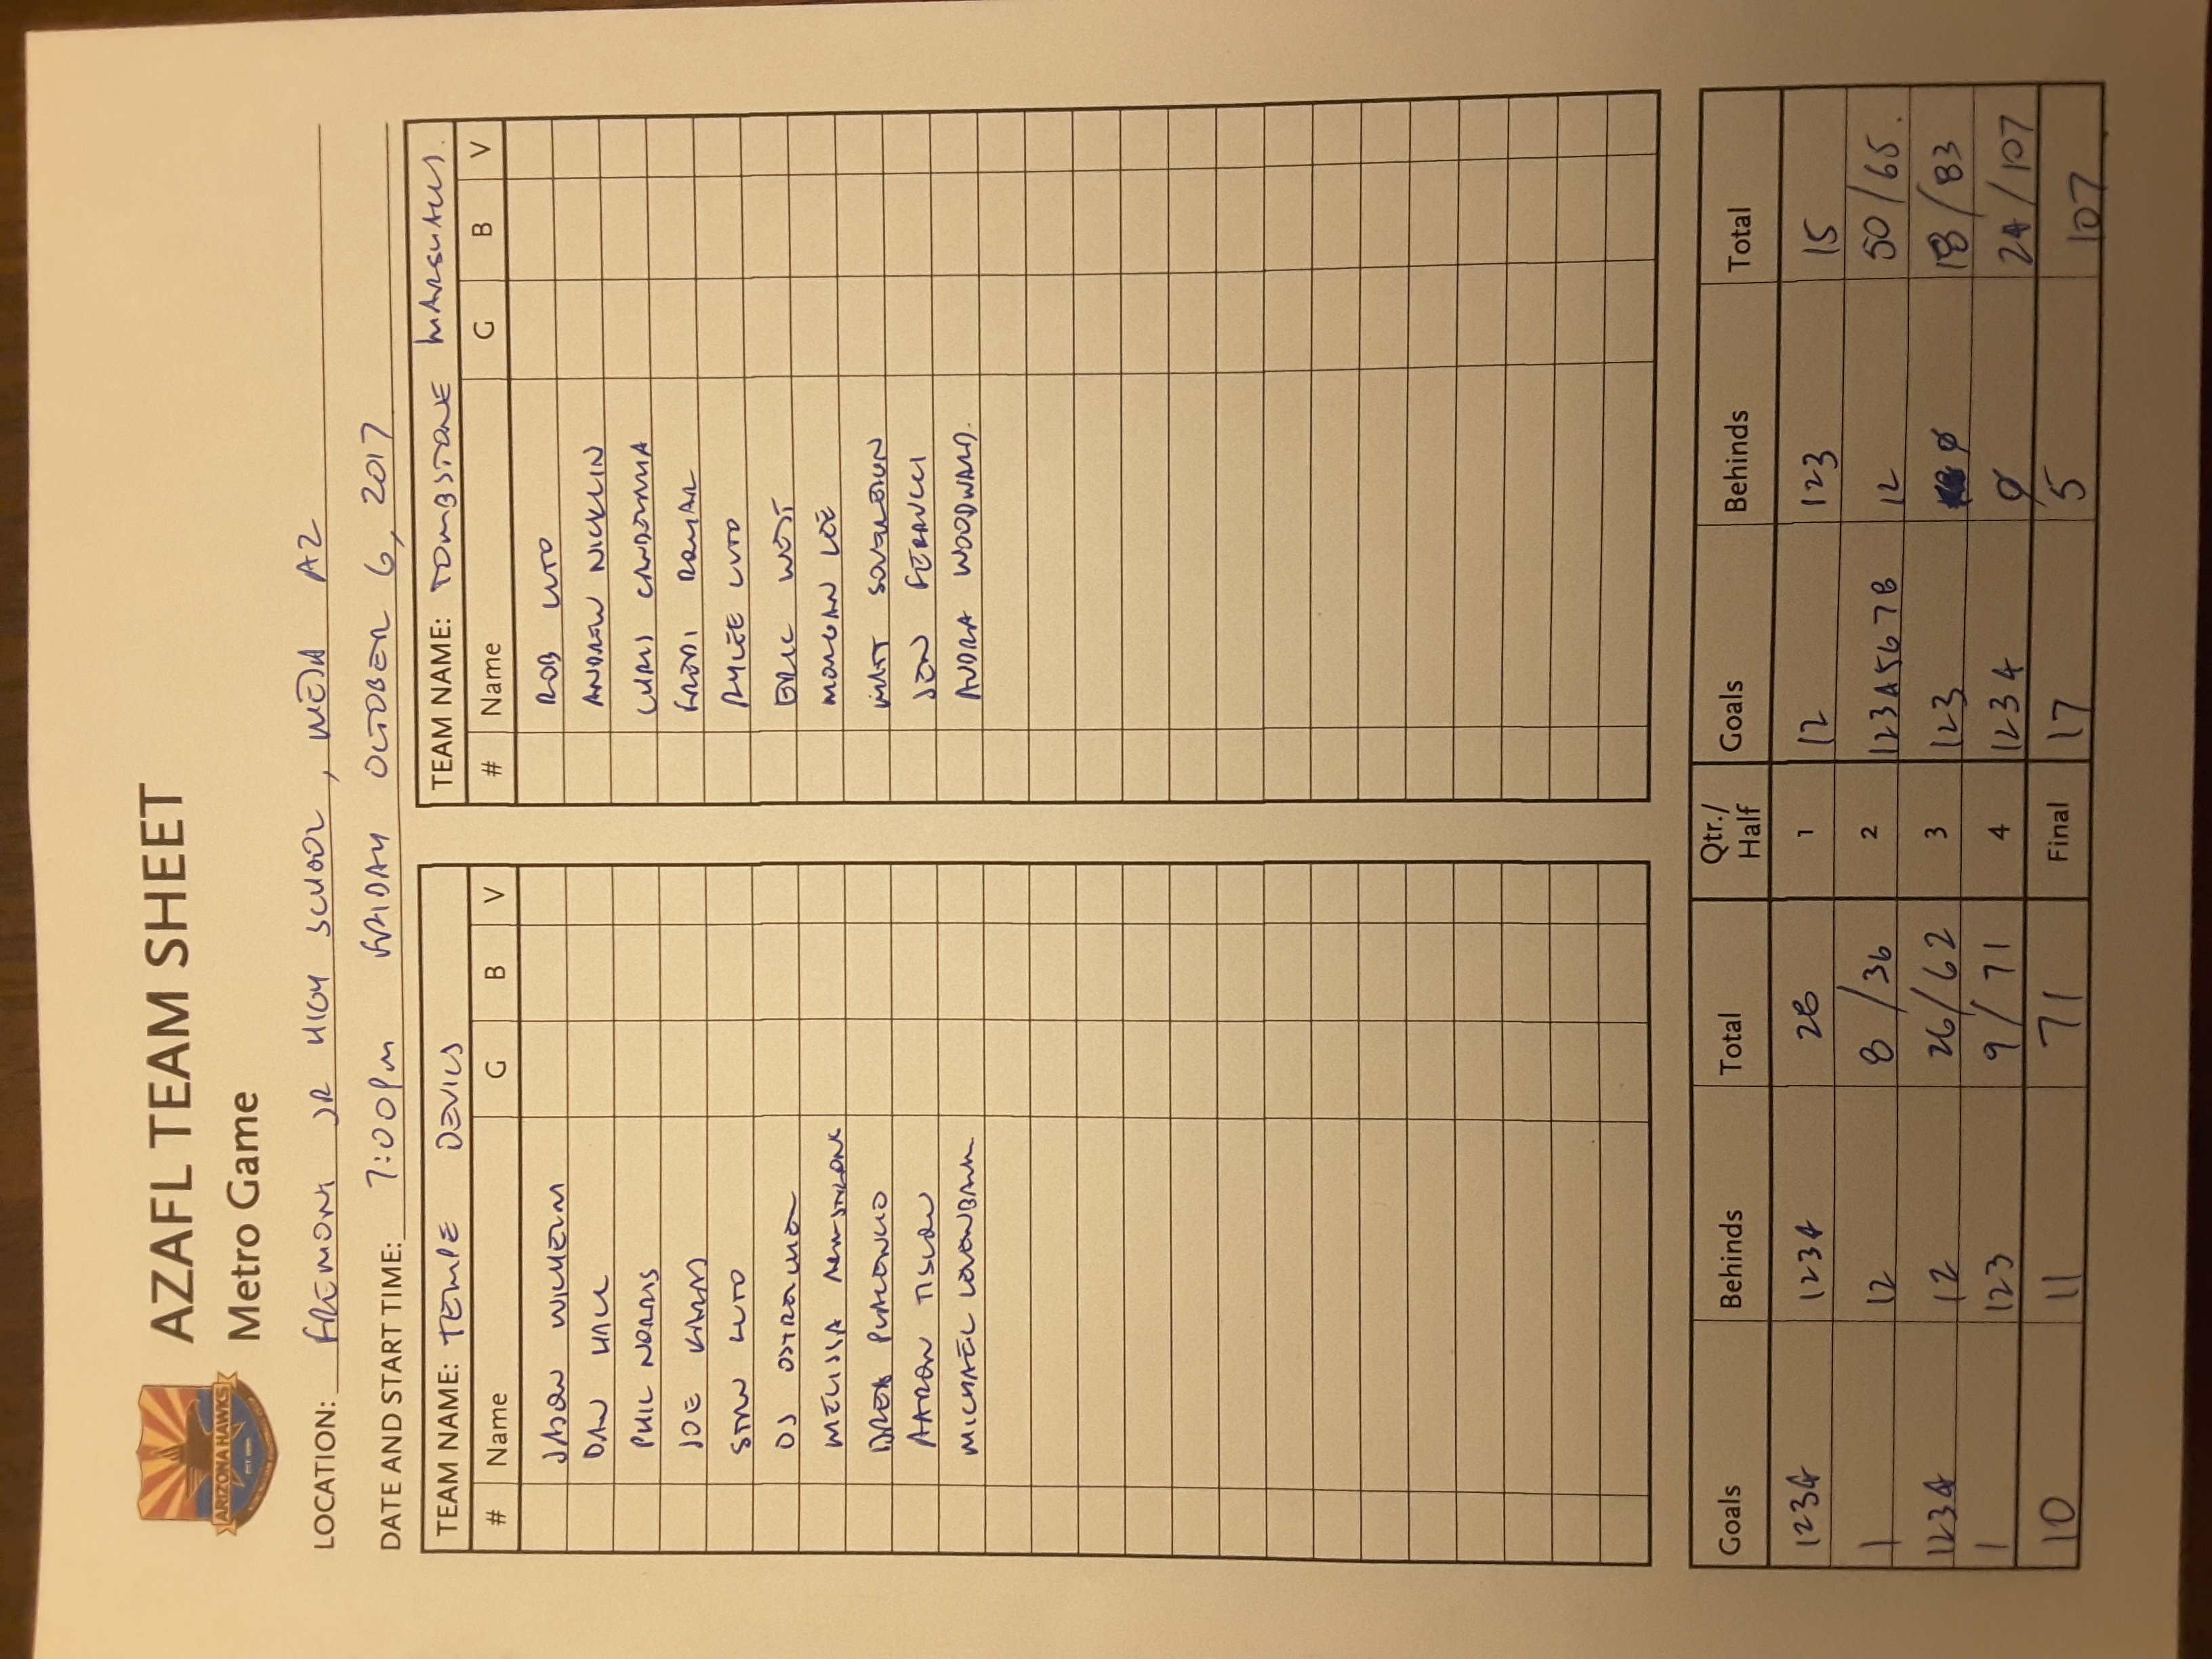 AZAFL TEAM SHEET
Metro Game
ARIZONA HAWKS
LOCATION: FREMONT JR HIGH SCHOOL, MESA AZ
DATE AND START TIME: 7:00PM FRIDAY OCTOBER 6, 2017
TEAM NAME: TEMPE DEVILS
# Name G B V
JASON WILHELM
DAN HALL
PHIL NORRIS
JOE
STEW LUTO
OJ
MELISSA ARMSTRONG
AARON
MICHAEL
TEAM NAME: TOMBSTONE MARSHALLS.
# Name G B V
ROB LUTO
ANDREW NICKLIN
CHRIS CANDELARIA
RYLEE LUTO
ERIC WEST
MORGAN LEE
MATT
JEN
AUDRA WOODWARD.
Goals Behinds Total Qtr./Half Goals Behinds Total
1234 1234 28 1 12 123 15
1 12 8/36 2 12345678 12 50/65.
1234 12 26/62 3 123 0 18/83
1 123 9/71 4 1234 0 24/107
10 11 71 Final 17 5 107